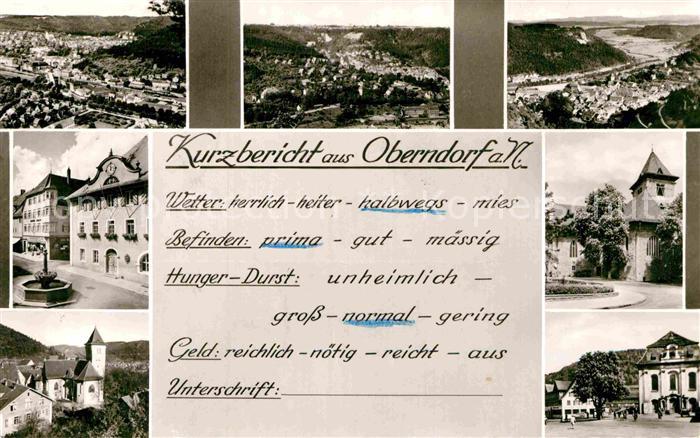 Kurzbericht aus Oberndorf a.N.
Wetter: herrlich - heiter - halbwegs - mies
Befinden: prima - gut - mässig
Hunger-Durst: unheimlich -
groß - normal - gering
Geld: reichlich - nötig - reicht - aus
Unterschrift: